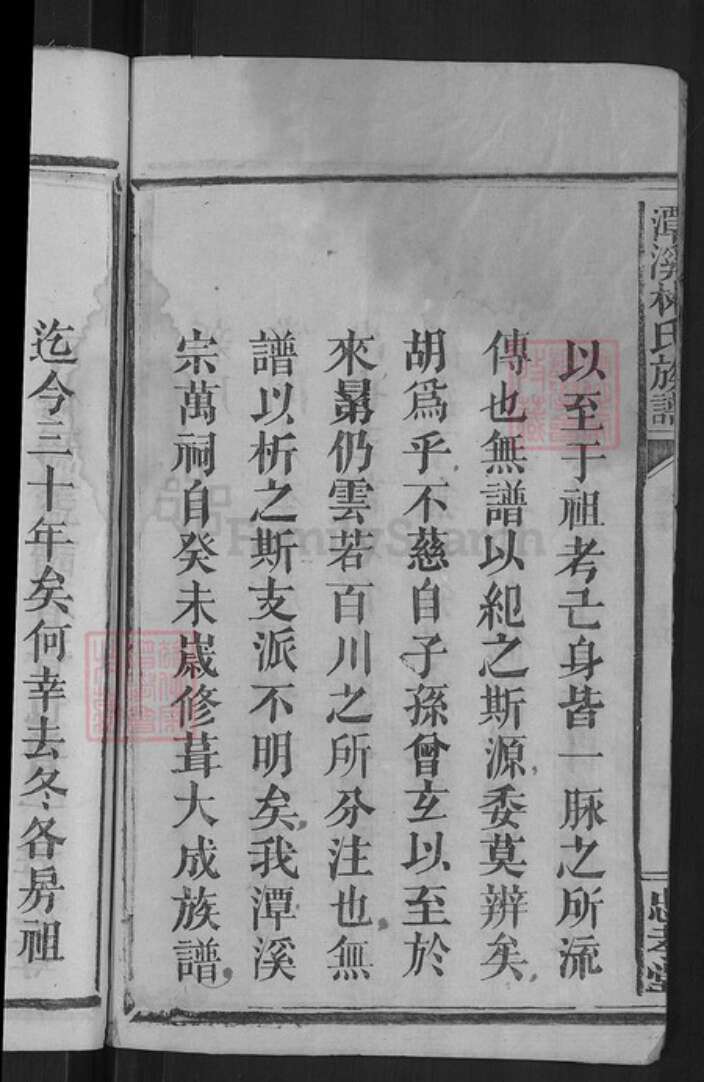 潭溪林氏族譜
忠孝堂
以至于祖考亡身皆一脉之所流
傳也無譜以紀之斯源委莫辨矣
胡爲乎不慈自子孫曾玄以至於
來晜仍雲若百川之所分注也無
譜以析之斯支派不明矣我潭溪
宗萬祠自癸未歲修葺大成族譜
迄今三十年矣何幸去冬各房祖
FamilySearch